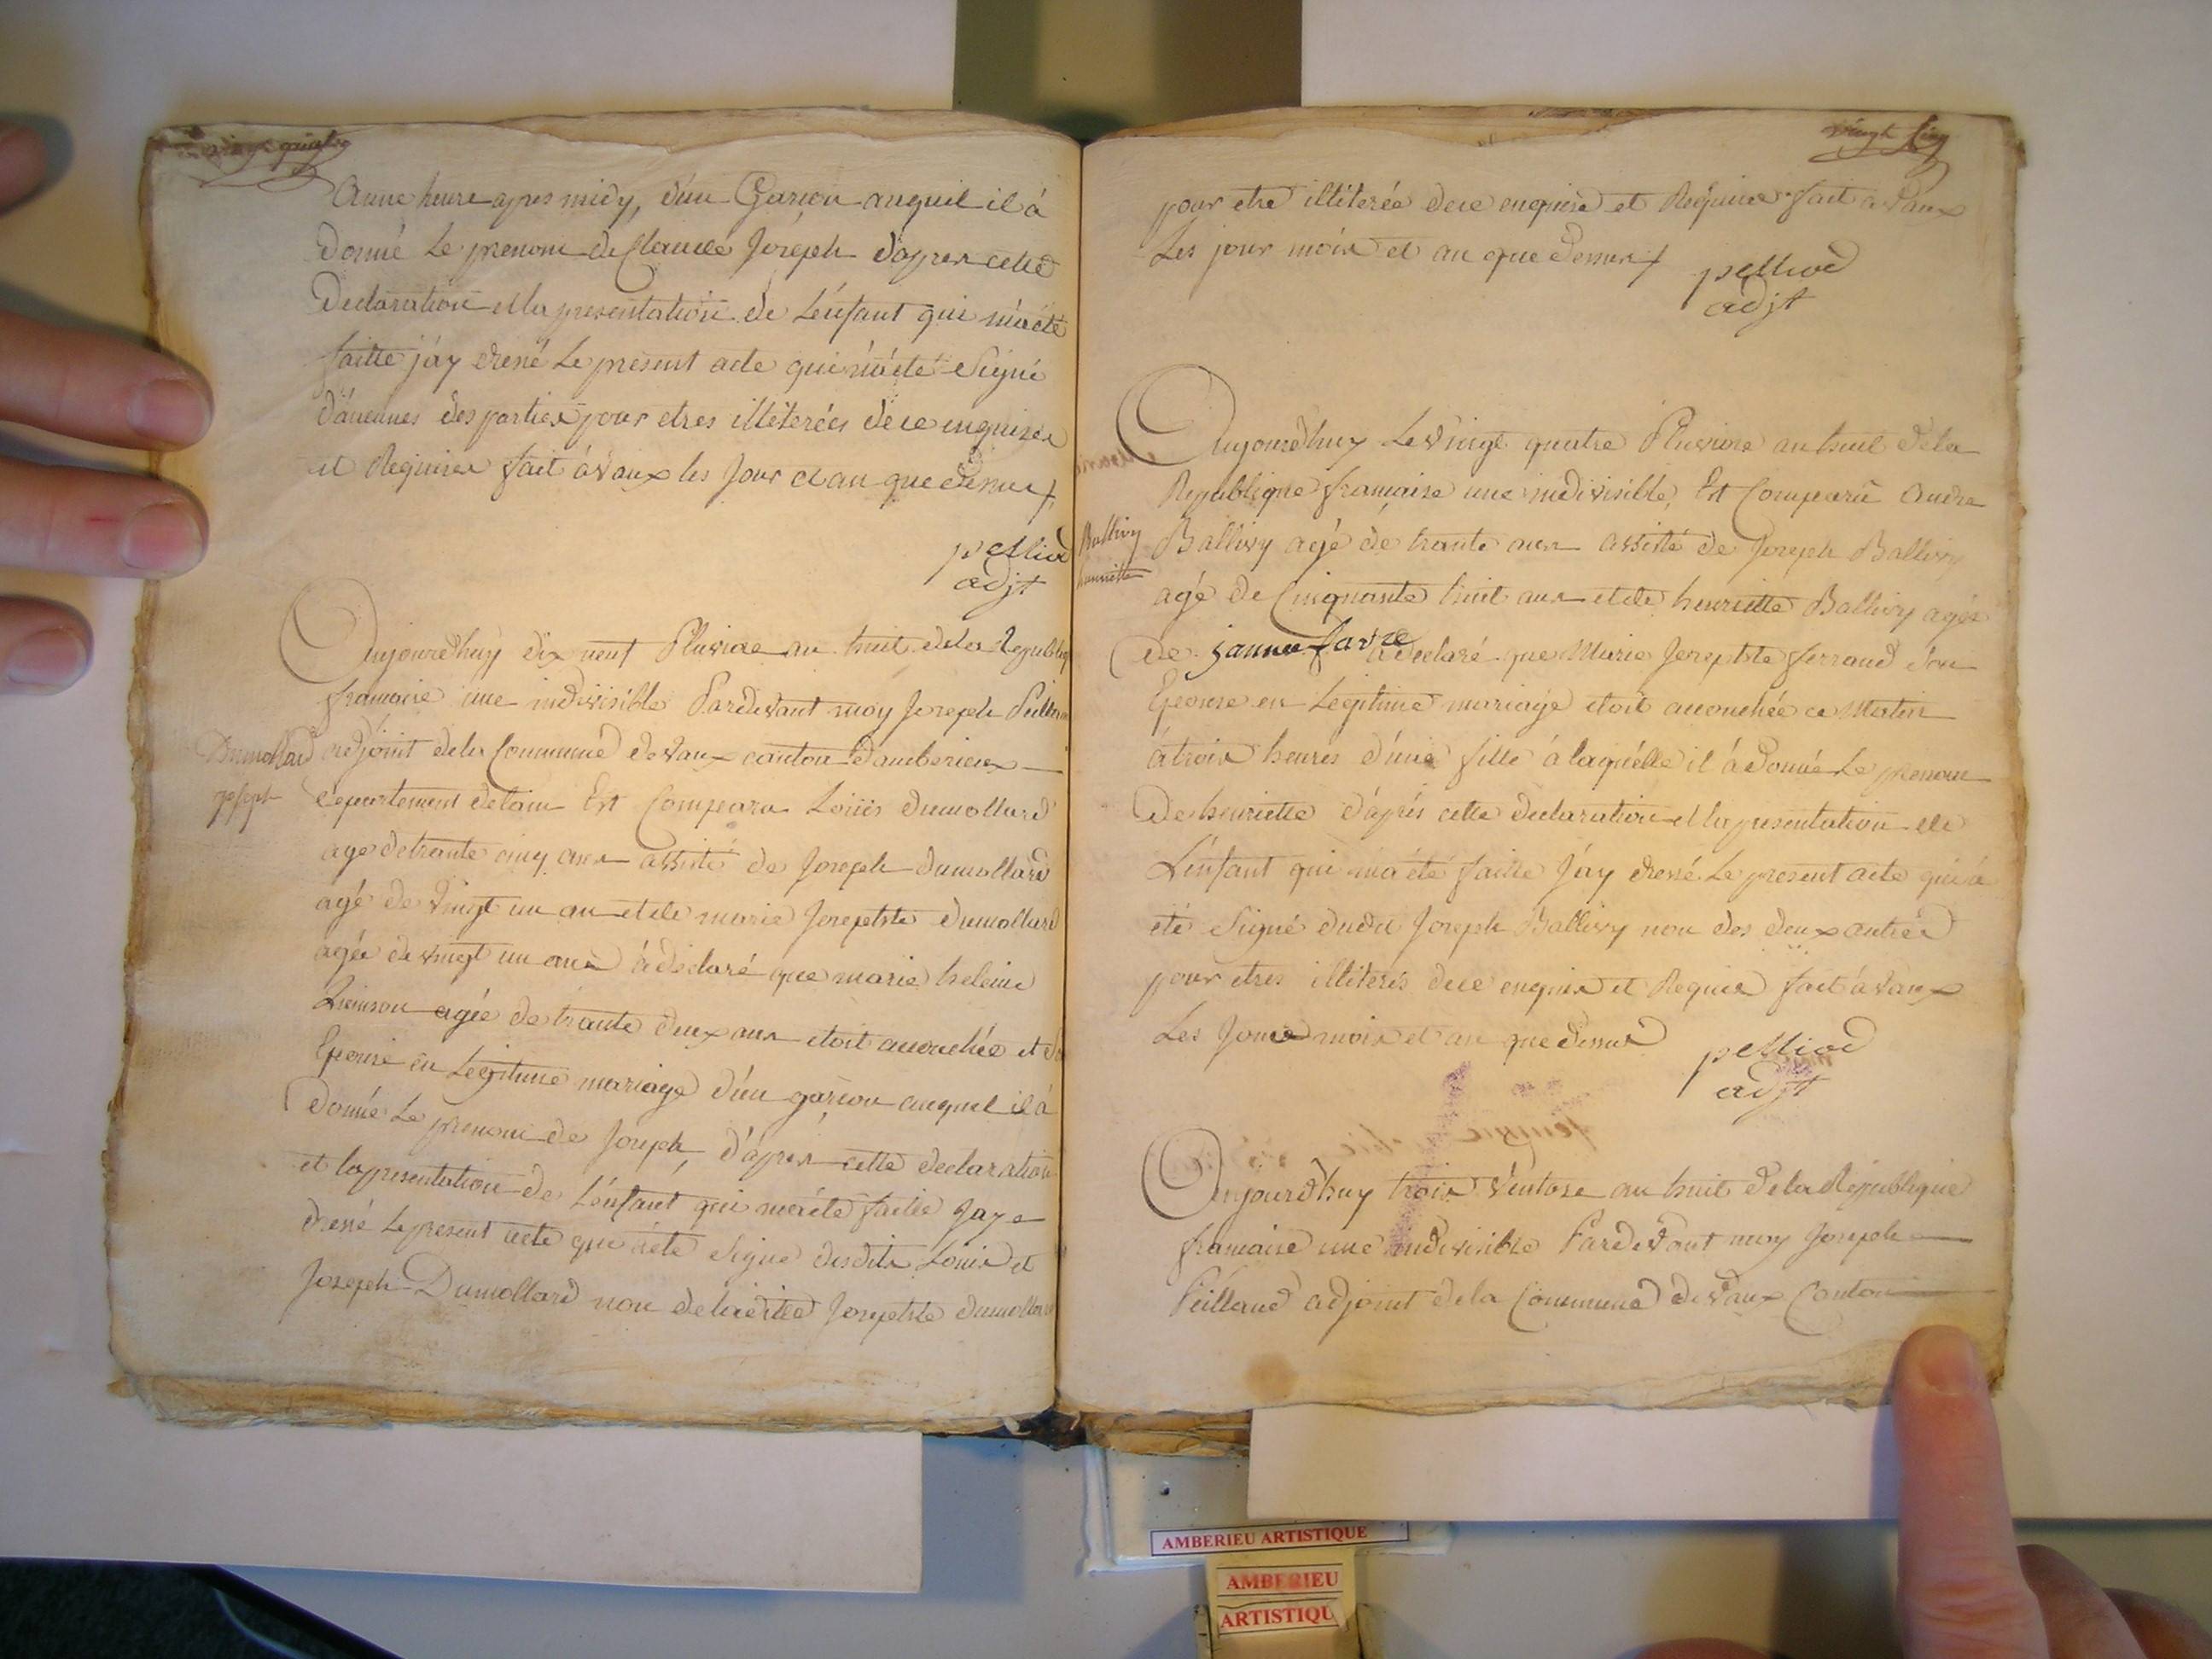 vingt quatre
à une heure apres midy, d'un Garcon auquel il à
donné Le prenom de Claude Joseph d'apres cette
Declaration et la presentation de L'énfant qui m'a été
faitte j'ay dressé Le present acte qui n'a été Signé
d'aucunes des parties pour etres illétereés de ce enquises
et Requises fait à Vaux les Jour et an que dessus
pelliod
adjt
Aujourdhuy dix neuf Pluviose an huit de la Republiq
francaise une indivisible Pardevant moy Joseph
Dumollard
joseph
adjoint de la Commune de Vaux canton d'amberieux
departement de lain Est Comparu Louis dumollard
agé de trante cinq ans assisté de Joseph dumollard
agé de vingt un an et de marie Josephte dumollard
agée de vingt un ans à déclaré que marie heleine
agée de trante deux ans etoit accouchée et
Epouse en Legitime mariage d'un garcon auquel il à
donné Le prenom de Joseph, d'àprés cette declaration
et la presentation de L'énfant qui m'a été faitte Jay
dressé Le present acte qui a été Signé desdits Louis et
Joseph Dumollard non de laditte Josephte dumollard
vingt cinq
pour etre illiterée de ce enquise et Requise fait a Vaux
Les jour mois et an que dessus
pelliod
adjt
Aujourdhuy Le Vingt quatre Pluviose an huit de la
Republique francaise une indivisible, Est Comparu Andre
Ballivy
henriette
Ballivy agé de trante ans assisté de Joseph Ballivy
agé de Cinquante huit ans et de henriette Ballivy agée
de janne favre a declaré que Marie Josephte ferrand son
Epouse en Legitime mariage etoit accouchée ce Matin
à trois heures d'une fille à laquélle il à Donné Le prenom
De henriette d'àprés cette declaration et la presentation de
L'énfant qui m'a été faitte J'ay dressé Le present acte qui à
été Signé dudit Joseph Ballivy non des deux autres
pour etres illiterés de ce enquis et Requis fait à Vaux
Les Jour mois et an que dessus
pelliod
adjt
Aujourdhuy trois Ventose an huit de la Republique
francaise une indivisible Pardevant moy Joseph
Peilland adjoint de la Commune de Vaux Canton
AMBERIEU ARTISTIQUE
AMBERIEU
ARTISTIQU